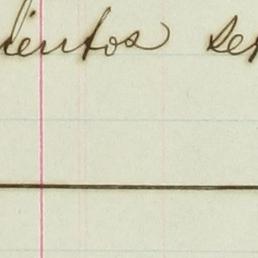 ientos se